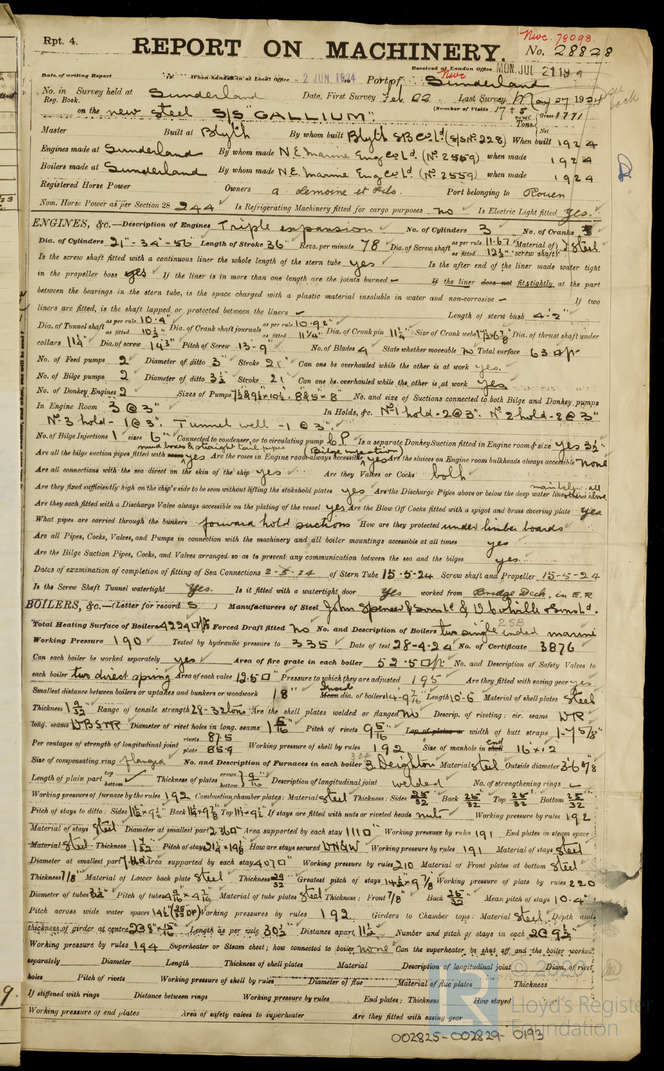 Rpt. 4.
Nwc. 78098
REPORT ON MACHINERY.
No. 28828
Received at London Office MON. JUL 21 19
Date of writing Report 19 When handed in at Local Office 2 JUN. 1924 Port of Sunderland
No. in Reg. Book. Survey held at Sunderland Date, First Survey Feb 22 Last Survey May 27 1924
on the new steel S/S "GALLIUM" (Number of Visits
Tons Gross 1771 Net
Master Built at Blyth By whom built Blyth S.B. Co Ld (S/S No 228) When built 1924
Engines made at Sunderland By whom made N.E. Marine Eng Co Ld. (No 2559) when made 1924
Boilers made at Sunderland By whom made N.E. Marine Eng Co Ld. (No 2559) when made 1924
Registered Horse Power Owners A. Lemoine et Fils. Port belonging to Rouen
Nom. Horse Power as per Section 28 244 Is Refrigerating Machinery fitted for cargo purposes no Is Electric Light fitted yes.
ENGINES, &c.—Description of Engines Triple expansion No. of Cylinders 3 No. of Cranks 3
Dia. of Cylinders 21"-34"-56" Length of Stroke 36" Revs. per minute 78 Dia. of Screw shaft as per rule 11.67 as fitted 12½" Material of screw shaft steel
Is the screw shaft fitted with a continuous liner the whole length of the stern tube yes Is the after end of the liner made water tight
in the propeller boss yes If the liner is in more than one length are the joints burned If the liner does not fit tightly at the part
between the bearings in the stern tube, is the space charged with a plastic material insoluble in water and non-corrosive If two
liners are fitted, is the shaft lapped or protected between the liners Length of stern bush 4'-2"
Dia. of Tunnel shaft as per rule 10.4" as fitted 10½" Dia. of Crank shaft journals as per rule 10.92" as fitted 11¼" Dia. of Crank pin 11¼" Size of Crank webs Dia. of thrust shaft under
collars 11¼" Dia. of screw 14'3" Pitch of Screw 13'-9" No. of Blades 4 State whether moveable no Total surface 63
No. of Feed pumps 2 Diameter of ditto 3" Stroke 21" Can one be overhauled while the other is at work yes.
No. of Bilge pumps 2 Diameter of ditto 3½ Stroke 21 Can one be overhauled while the other is at work yes
No. of Donkey Engines 2 Sizes of Pumps No. and size of Suctions connected to both Bilge and Donkey pumps
In Engine Room 3 @ 3" In Holds, &c. No 1 hold - 2 @ 3". No 2 hold - 2 @ 3"
No 3 hold - 1 @ 3". Tunnel well - 1 @ 3".
No. of Bilge Injections 1 sizes 6" Connected to condenser, or to circulating pump C.P. Is a separate Donkey Suction fitted in Engine room & size yes 3½"
Are all the bilge suction pipes fitted with roses yes Are the roses in Engine room always accessible yes Are the sluices on Engine room bulkheads always accessible none
Are all connections with the sea direct on the skin of the ship yes Are they Valves or Cocks both
Are they fixed sufficiently high on the ship's side to be seen without lifting the stokehold plates yes Are the Discharge Pipes above or below the deep water line
Are they each fitted with a Discharge Valve always accessible on the plating of the vessel yes Are the Blow Off Cocks fitted with a spigot and brass covering plate yes
What pipes are carried through the bunkers forward hold suctions How are they protected under limber boards
Are all Pipes, Cocks, Valves, and Pumps in connection with the machinery and all boiler mountings accessible at all times yes
Are the Bilge Suction Pipes, Cocks, and Valves arranged so as to prevent any communication between the sea and the bilges yes.
Dates of examination of completion of fitting of Sea Connections 2-5-24 of Stern Tube 15-5-24 Screw shaft and Propeller 15-5-24
Is the Screw Shaft Tunnel watertight yes. Is it fitted with a watertight door yes worked from Bridge Deck, in E.R
BOILERS, &c.—(Letter for record S) Manufacturers of Steel John Spencer & Sons Ld & D. Colville & Sons Ld.
Total Heating Surface of Boilers 4224 Forced Draft fitted no No. and Description of Boilers two single ended marine
Working Pressure 190 Tested by hydraulic pressure to 335 Date of test 28-4-24 No. of Certificate 3876
Can each boiler be worked separately yes Area of fire grate in each boiler 52.5 No. and Description of Safety Valves to
each boiler two direct spring Area of each valve Pressure to which they are adjusted 195 Are they fitted with easing gear yes
Smallest distance between boilers or uptakes and bunkers or woodwork 18" dia. of boilers Length 10-6 Material of shell plates steel
Thickness Range of tensile strength 28-32 tons Are the shell plates welded or flanged no Descrip. of riveting: cir. seams D.R
long. seams Diameter of rivet holes in long. seams Pitch of rivets Lap of plates or width of butt straps 1-7⅝"
Per centages of strength of longitudinal joint rivets 87.5 plate 85.9 Working pressure of shell by rules 192 Size of manhole in end 16"x12
Size of compensating ring flanged No. and Description of Furnaces in each boiler 3. Deighton Material steel Outside diameter
Length of plain part top bottom Thickness of plates crown bottom Description of longitudinal joint welded No. of strengthening rings
Working pressure of furnace by the rules 192 Combustion chamber plates: Material steel Thickness: Sides 25/32 Back 25/32 Top 25/32 Bottom 25/32
Pitch of stays to ditto: Sides Back Top If stays are fitted with nuts or riveted heads nuts Working pressure by rules 192
Material of stays steel Diameter at smallest part Area supported by each stay 111.0" Working pressure by rules 191 End plates in steam space
Material steel Thickness 1 3/32 Pitch of stays How are stays secured D.N&W Working pressure by rules 191 Material of stays steel
Diameter at smallest part Area supported by each stay 407.0" Working pressure by rules 210 Material of Front plates at bottom steel
Thickness Material of Lower back plate steel Thickness 29/32 Greatest pitch of stays Working pressure of plate by rules 220
Diameter of tubes 3½" Pitch of tubes Material of tube plates steel Thickness: Front 7/8" Back 25/32 Mean pitch of stays 10.4"
Pitch across wide water spaces Working pressures by rules 192. Girders to Chamber tops: Material steel Depth and
thickness of girder at centre Length as per rule 30½ Distance apart 11½ Number and pitch of stays in each
Working pressure by rules 194 Superheater or Steam chest; how connected to boiler none Can the superheater be shut off and the boiler worked
separately Diameter Length Thickness of shell plates Material Description of longitudinal joint Diam. of rivet
holes Pitch of rivets Working pressure of shell by rules Diameter of flue Material of flue plates Thickness
If stiffened with rings Distance between rings Working pressure by rules End plates: Thickness How stayed
Working pressure of end plates Area of safety valves to superheater Are they fitted with easing gear
© 2020
Lloyd's Register
Foundation
002825-002829-0193